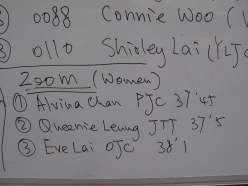 ② 0088 Connie Woo (
③ 0110 Shirley Lai (YLJC
200m (Women)
① Alvina Chan PJC 37'45
② Queenie Leung JTT 37'5
③ Eve Lai OJC 38'1